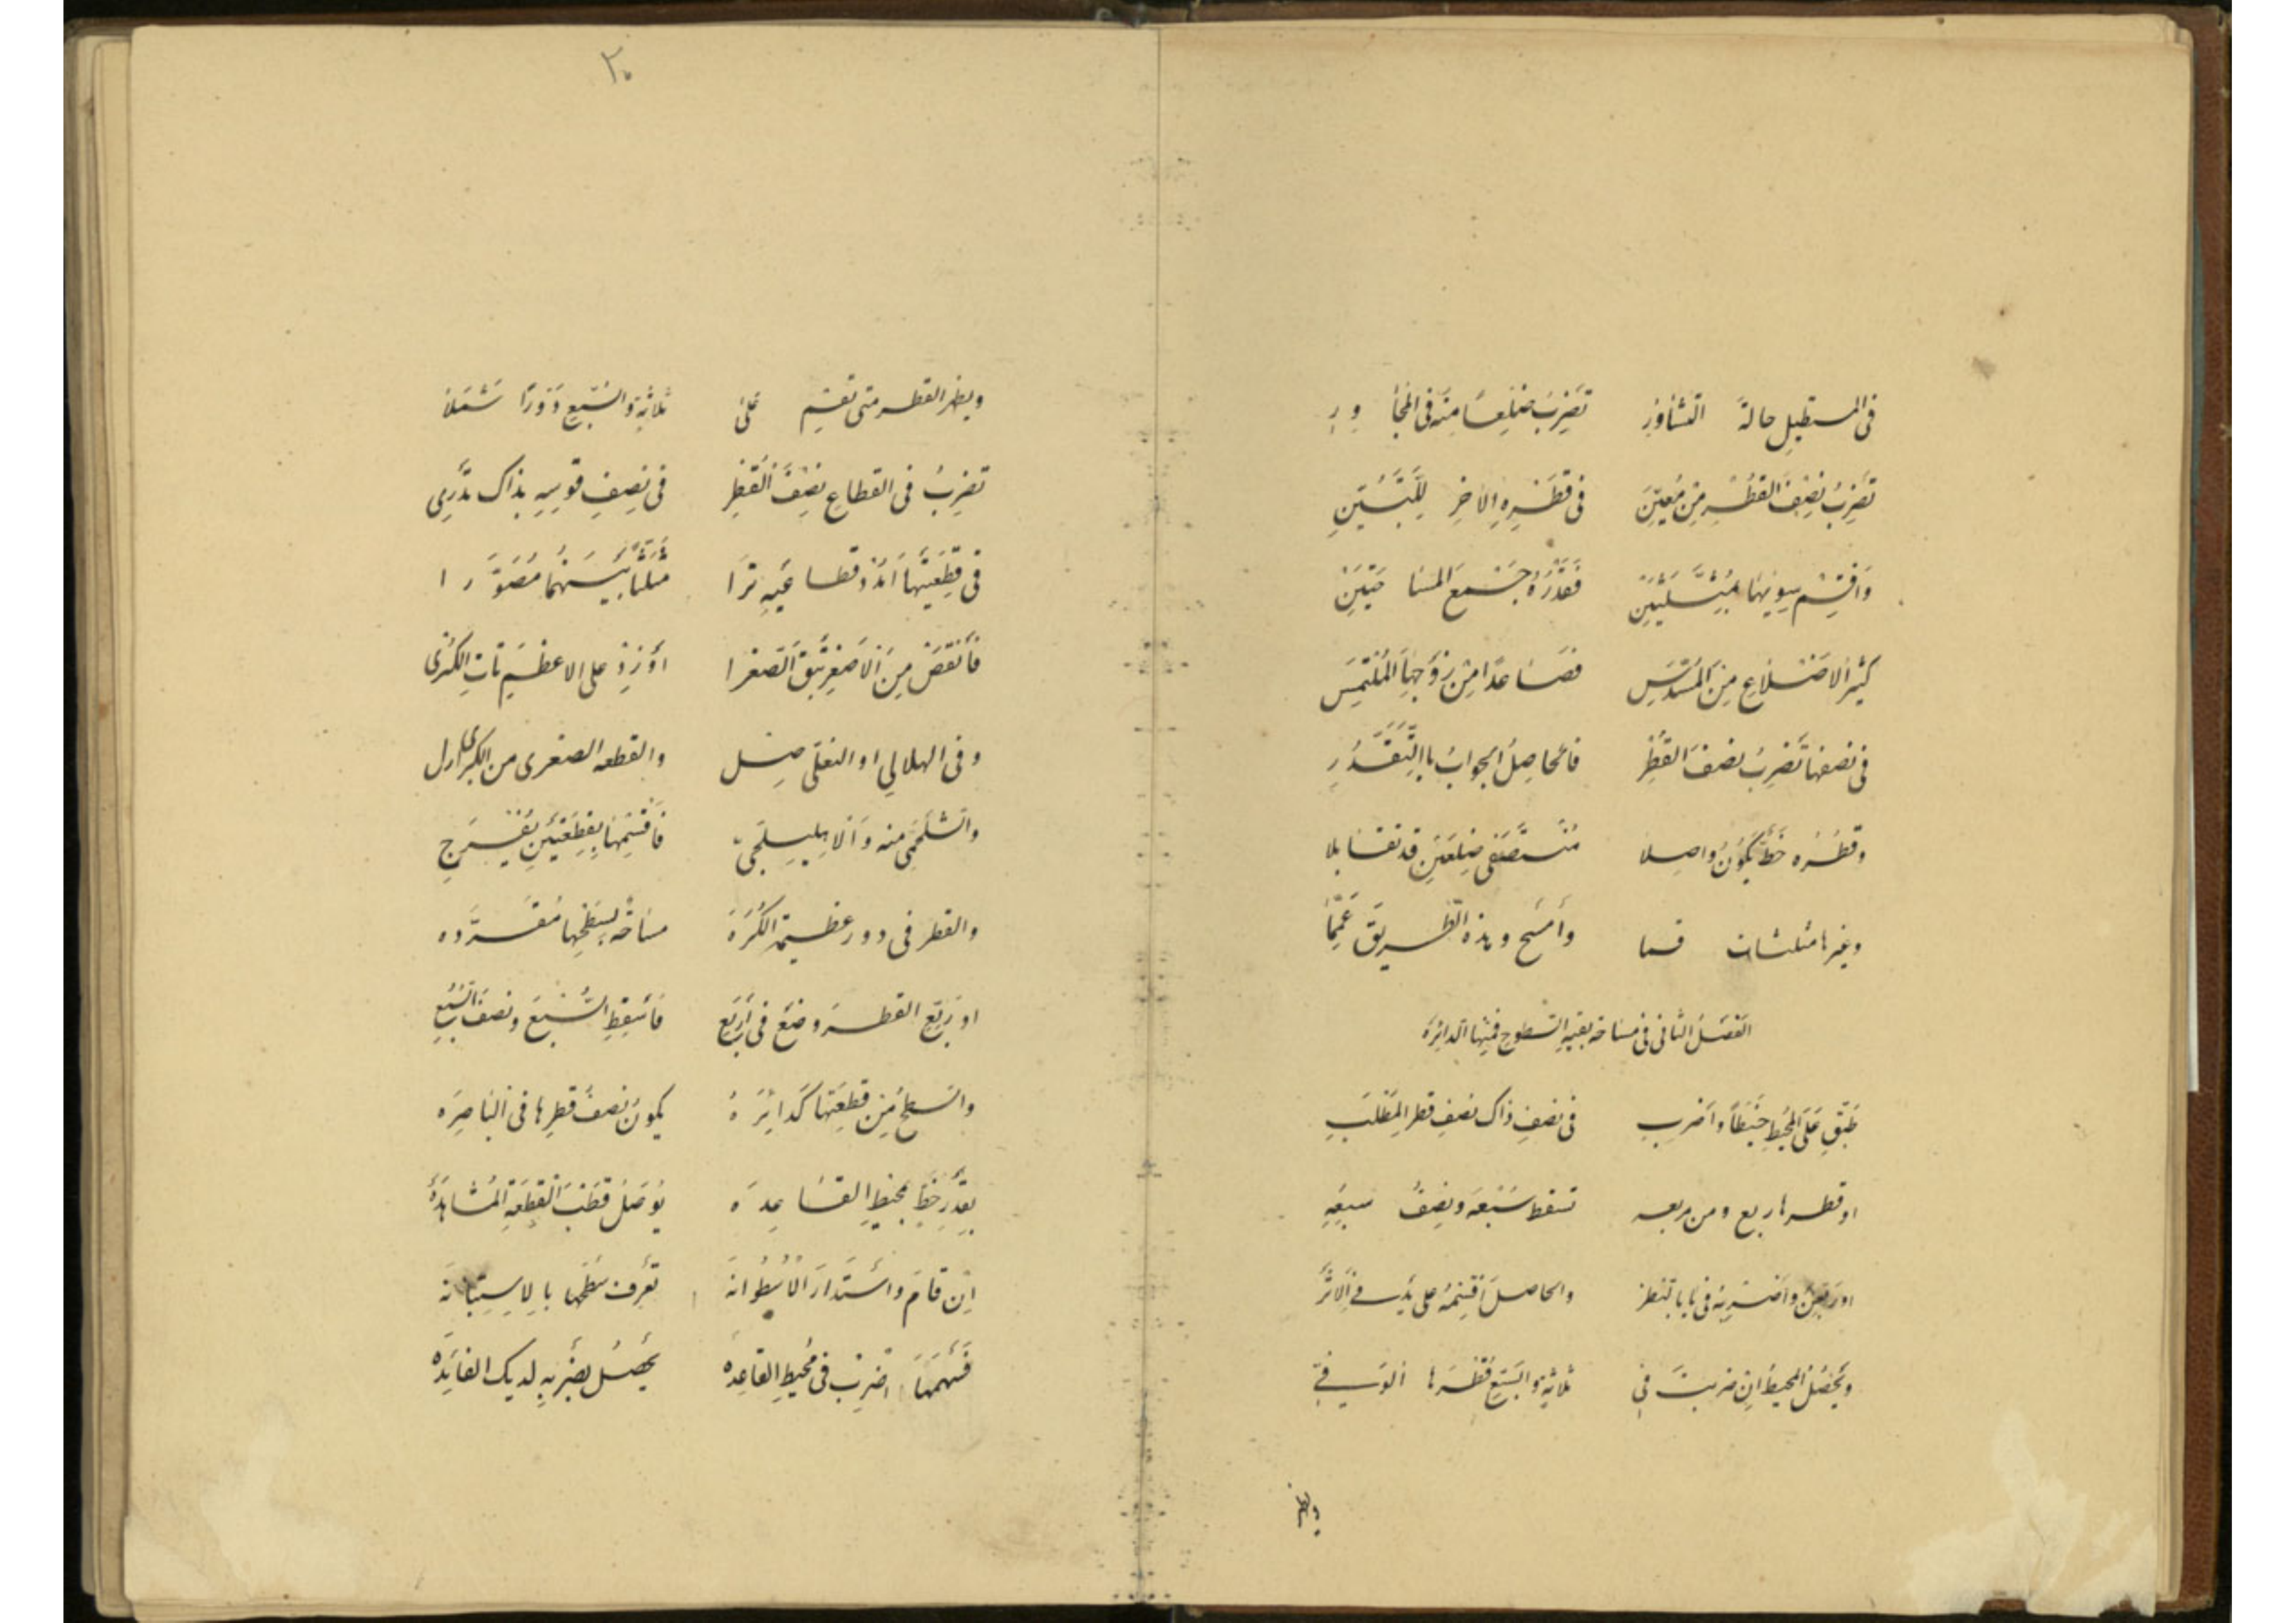 فى المستطيل حالة التشاور تضرب ضلعا منه فى المجاور
تضرب نصف القطر من معين فى قطره الاخر للتبيين
واقسم سويهما بمثلثين فقدره جمع المساحتين
كثير الاضلاع من المسدس فصاعدا من زوجها الملتمس
فى نصفها تضرب نصف القطر فالحاصل الجواب باالتقدر
وقطره خط يكون واصلا منتصفى ضلعين قد تقابلا
وغيرها مثلثات قسما وأمسح وهذه الطريق عمما
الفصل الثانى فى مساحة بقية السطوح فمنها الدائرة
طبق على المحيط خيطا واضرب فى نصف ذاك نصف قطر المطلب
او قطرها ربع ومن مربعه تسقط سبعه ونصف سبعه
والحاصل اقسمه على يد فى الاثر
ويحصل المحيط ان ضربت فى ثلاثة والسبع قطرها الوفى
ويظهر
٣٠
ويظهر القطر متى تقسم على ثلاثة والسبع دورا شملا
تضرب فى القطاع نصف القطر فى نصف قوسه بذاك تدرى
فى قطعتيها ترا مثلثا بينهما مصورا
فأنقص من الاصغر تبق الصغرا أو زد على الاعظم تات الكبرى
وفى الهلالي او النعلى صل والقطعه الصغرى من الكبرى ازل
والشلجمى منه والاهليلجى فأقسمها بقطعتين يفرج
والقطر فى دور عظيمة الكره مساحة بسطحها مقرره
او ربع القطر وضع فى أربع فأسقط السبع ونصف السبع
والسطح من قطعتها كدائره يكون نصف قطرها فى الناصره
بقدر خط بمحيط القاعده يوصل قطب القطعة المشاهدة
إن قام واستدار الاسطوانة تعرف سطحها بالاستبانة
فسهمها اضرب فى محيط القاعده يحصل بضربه لديك الفايده